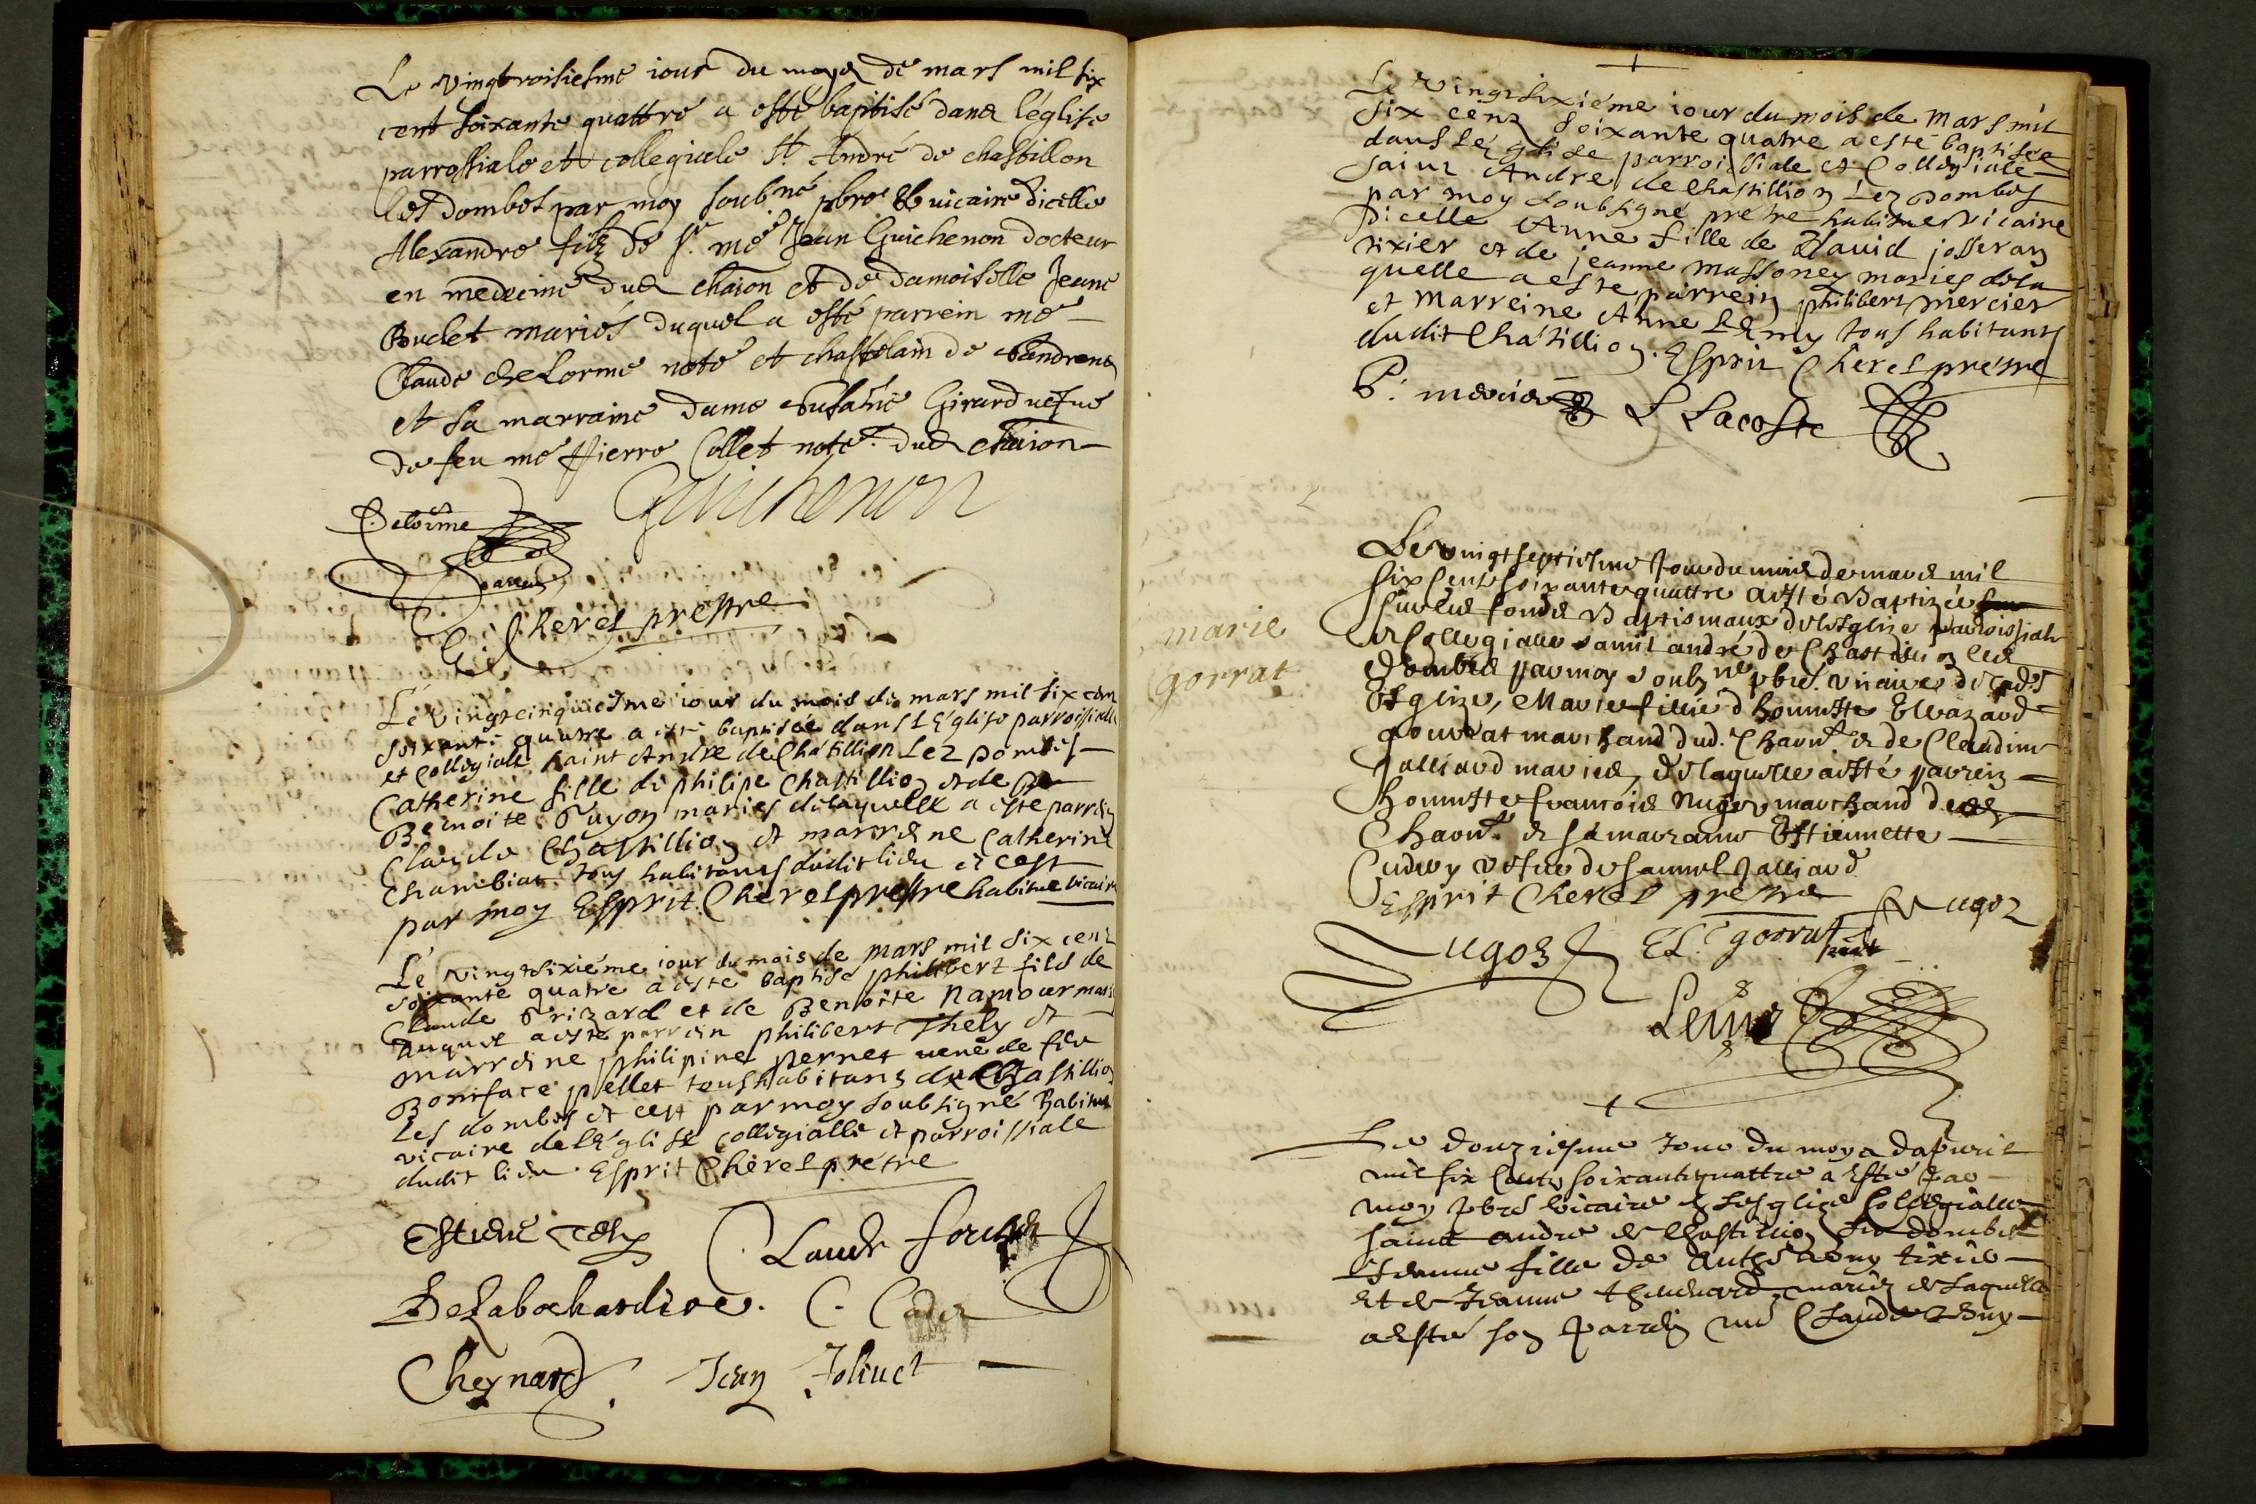 Le vingtroisiesme iour du moys de mars mil six
cent soixante quattre a esté baptisé dans l'église
parrossiale et collegiale St André de chastillon
les dombes par moy soubné pbre & vicaire dicelle
Alexandre filz de sr. me Jean Guichenon docteur
en medecine dud chaon et de damoiselle Jeane
Bouclet mariés duquel a esté parrein me
Claude deLorme note et chastelain de
et sa marraine dame Susanne Girard vefue
de feu me Pierre Collet note. dud chaon
Delorme Guichenon
parrein
E. Cherel prestre
Le vingtcinquiesme iour du mois de mars mil six cent
soixante quatre a esté baptisée dans l'église parroissialle
et collegiale saint Andre de Chatillion Lez Dombes
Catherine fille de philipe Chastillion et de
Benoite Guyon maries de laquelle a esté parrein
Claude Chastillion et marreine Catherine
Chambiar tous habitans dudit lieu et cest
par moy Esprit Cherel prestre habitue vicaire
Le vingtsixiéme iour du mois de mars mil six cent
soixante quatre a esté baptisé philibert fils de
Claude Frizard et de Benoite Namour maries
duquel a esté parrein philibert Thely et
marreine philipine pernet veue de feu
Boniface pellet tous habitans de Chastillion
Les dombes et cest par moy soubsigné habitue
vicaire de l'Eglise collegialle et parroissiale
dudit lieu. Esprit Cherel prêtre
Estiene Claude
DeLabochardiere. C. Cadet
Cheynard. Jean Joliuet
Le vingtsixiéme iour du mois de mars mil
six cenz soixante quatre a esté baptisée
dans Léglise parroissiale et Collegiale
Saint André de Chastillion Lez Dombes
par moy soubsigné prêtre habitue vicaire
Dicelle Anne fille de David josseran
tixier et de jeanne massoney maries dela
quelle a este parrein philibert mercier
et marreine Anne Lemy tous habitants
dudit Chatillion. Esprit Cherel prêtre
P. mercier L Lacoste
marie
gorrat
Le vingtseptiesme Jour du mois de mars mil
six cent soixante quattre a esté Baptizée
sur les fonds Baptismaux de l'Esglize parroissiale
et Collegialle saint andré de Chastillion les
Dombes par moy soubzné pbre. vicaire de lade
Esglize, Marie fillie d honneste Eleazard
gourrat marchand dud. Chaon. & de Claudine
Galliard maries, de laquelle a esté parrein
honneste francois Nugoz marchand dud
Chaon. & sa marranne Estiennette
Cudrey vefue de samuel Galliard
Esprit Cherel prestre F Nugoz
Nugoz EL. gorrat
Le douziesme Jour du moys dapuril
mil six Cents soixantequattre a Esté par
moy pbre vicaire de Lesglize Collegialle
saint andre de Chastillion Les dombes
Jeanne fille de Anthe tixie
Et de Jeanne maries de Laquelle
a esté son parrein me Claude